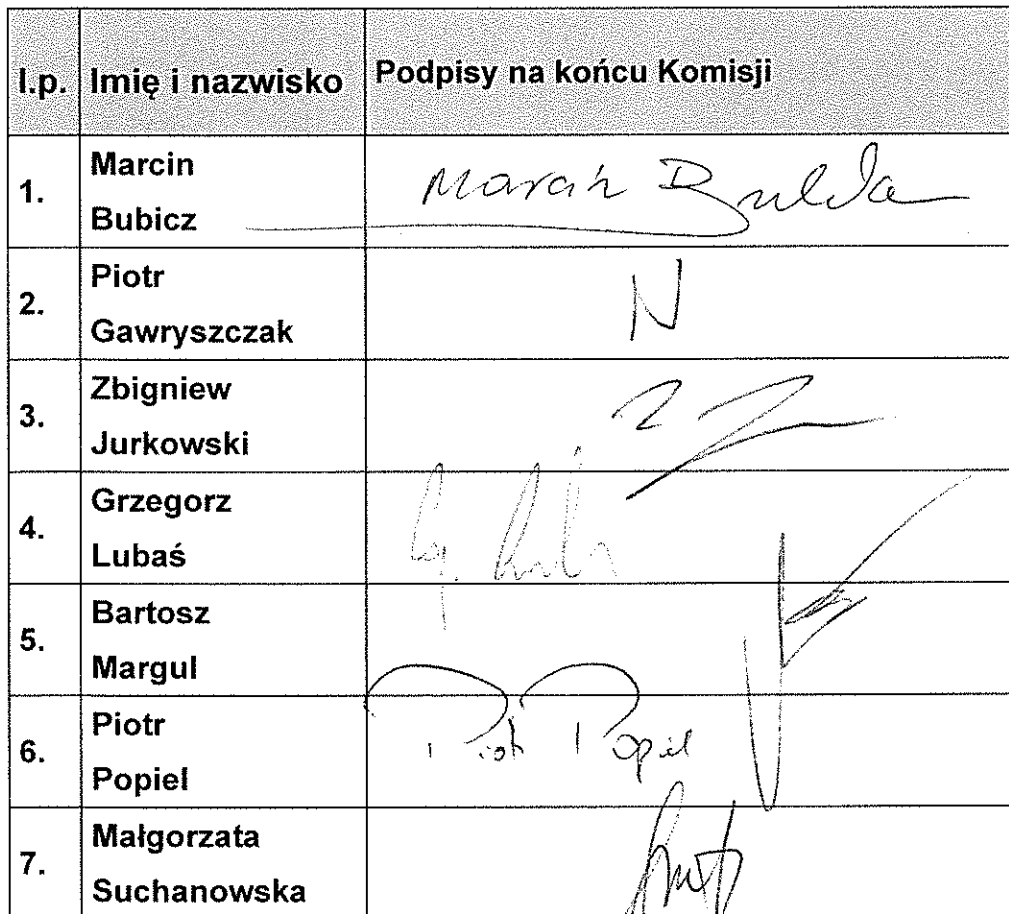 l.p. Imię i nazwisko Podpisy na końcu Komisji
1. Marcin Bubicz Marcin
2. Piotr Gawryszczak N
3. Zbigniew Jurkowski
4. Grzegorz Lubaś
5. Bartosz Margul
6. Piotr Popiel Piotr Popiel
7. Małgorzata Suchanowska